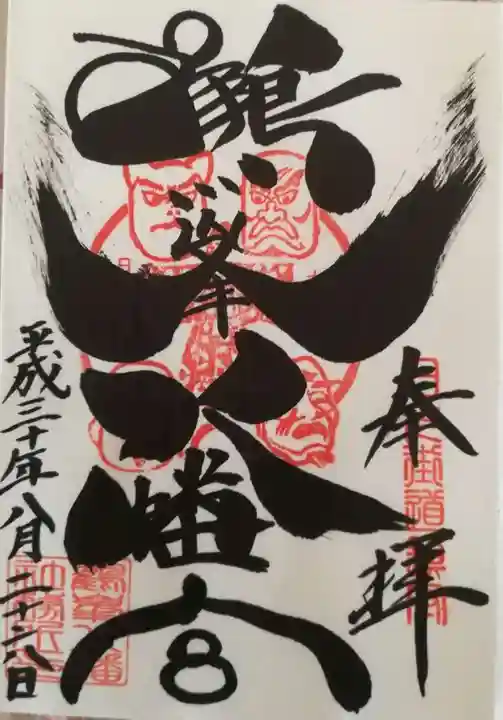 奉拝
鶴峯八幡宮
平成三十年八月二十八日